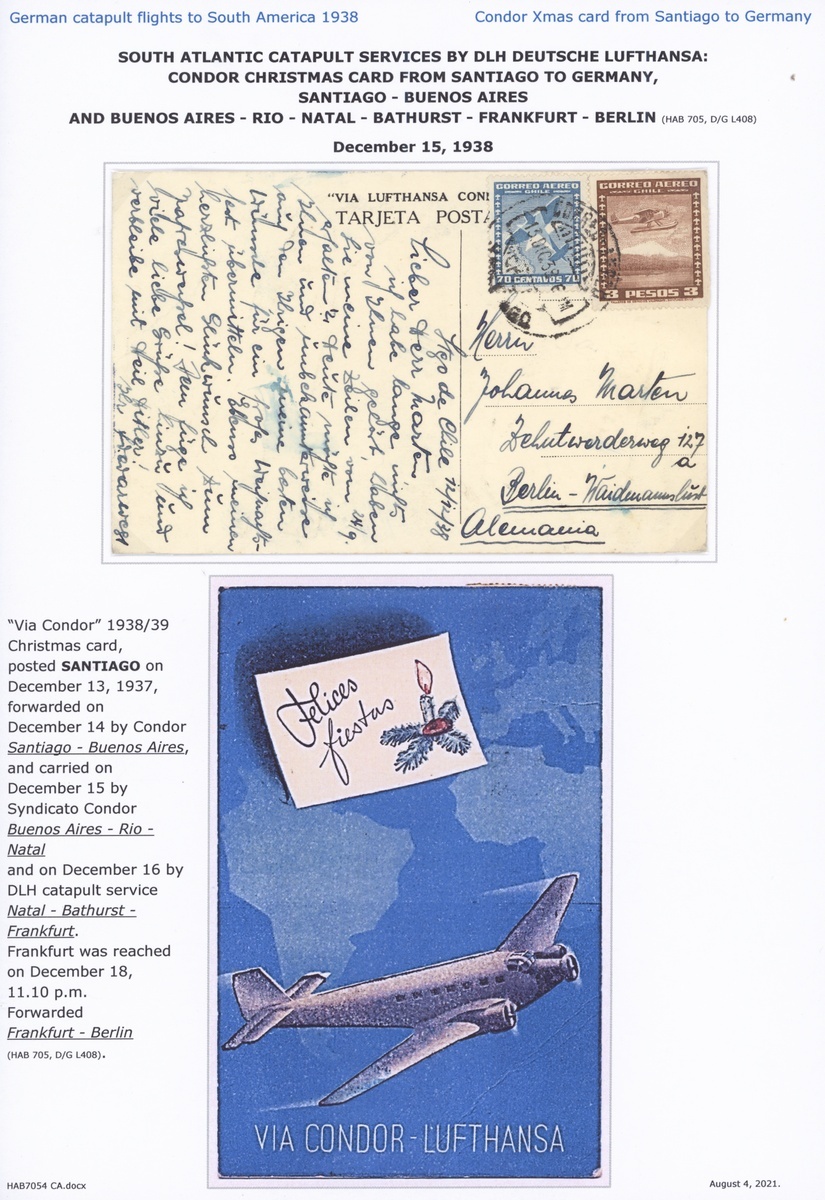 German catapult flights to South America 1938
Condor Xmas card from Santiago to Germany
SOUTH ATLANTIC CATAPULT SERVICES BY DLH DEUTSCHE LUFTHANSA:
CONDOR CHRISTMAS CARD FROM SANTIAGO TO GERMANY,
SANTIAGO - BUENOS AIRES
AND BUENOS AIRES - RIO - NATAL - BATHURST - FRANKFURT - BERLIN (HAB 705, D/G L408)
December 15, 1938
"VIA LUFTHANSA CON
TARJETA POSTA
CORREO AEREO
CHILE
70 CENTAVOS 70
CORREO AEREO
CHILE
3 PESOS 3
Stgo de Chile 12/12/38
Lieber Herr Marten
ich habe lange nichts
von Ihnen gehört. Haben
Sie meine Zeilen vom 24/9.
erhalten? Heute möchte ich
Ihnen und unbekannterweise
auf den Ihrigen meine besten
Wünsche für ein frohes Weihnachts-
fest übermitteln. Ebenso meinen
herzlichsten Glückwunsch zum
Jahreswechsel! Dem füge ich
viele liebe Grüße hinzu und
verbleibe mit Heil Hitler!
Ihr
Herrn
Johannes Marten
Zehntwerderweg 127
a
Berlin - Waidmannslust
Alemania
"Via Condor" 1938/39
Christmas card,
posted SANTIAGO on
December 13, 1937,
forwarded on
December 14 by Condor
Santiago - Buenos Aires,
and carried on
December 15 by
Syndicato Condor
Buenos Aires - Rio -
Natal
and on December 16 by
DLH catapult service
Natal - Bathurst -
Frankfurt.
Frankfurt was reached
on December 18,
11.10 p.m.
Forwarded
Frankfurt - Berlin
(HAB 705, D/G L408).
Felices
fiestas
VIA CONDOR-LUFTHANSA
HAB7054 CA.docx
August 4, 2021.